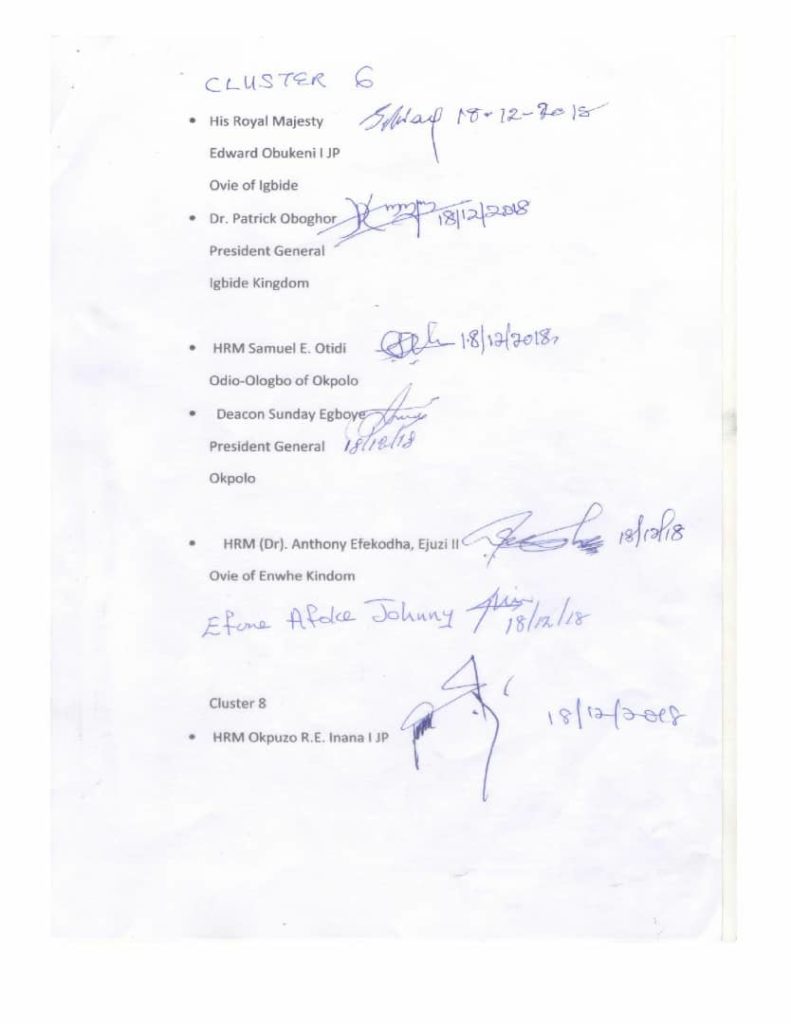 CLUSTER 6
• His Royal Majesty 18-12-2018
Edward Obukeni I JP
Ovie of Igbide
• Dr. Patrick Oboghor 18/12/2018
President General
Igbide Kingdom
• HRM Samuel E. Otidi 18/12/2018
Odio-Ologbo of Okpolo
• Deacon Sunday Egboye
President General 18/12/18
Okpolo
• HRM (Dr). Anthony Efekodha, Ejuzi II 18/12/18
Ovie of Enwhe Kindom
Afoke Johnny 18/12/18
Cluster 8
18/12/2018
• HRM Okpuzo R.E. Inana I JP